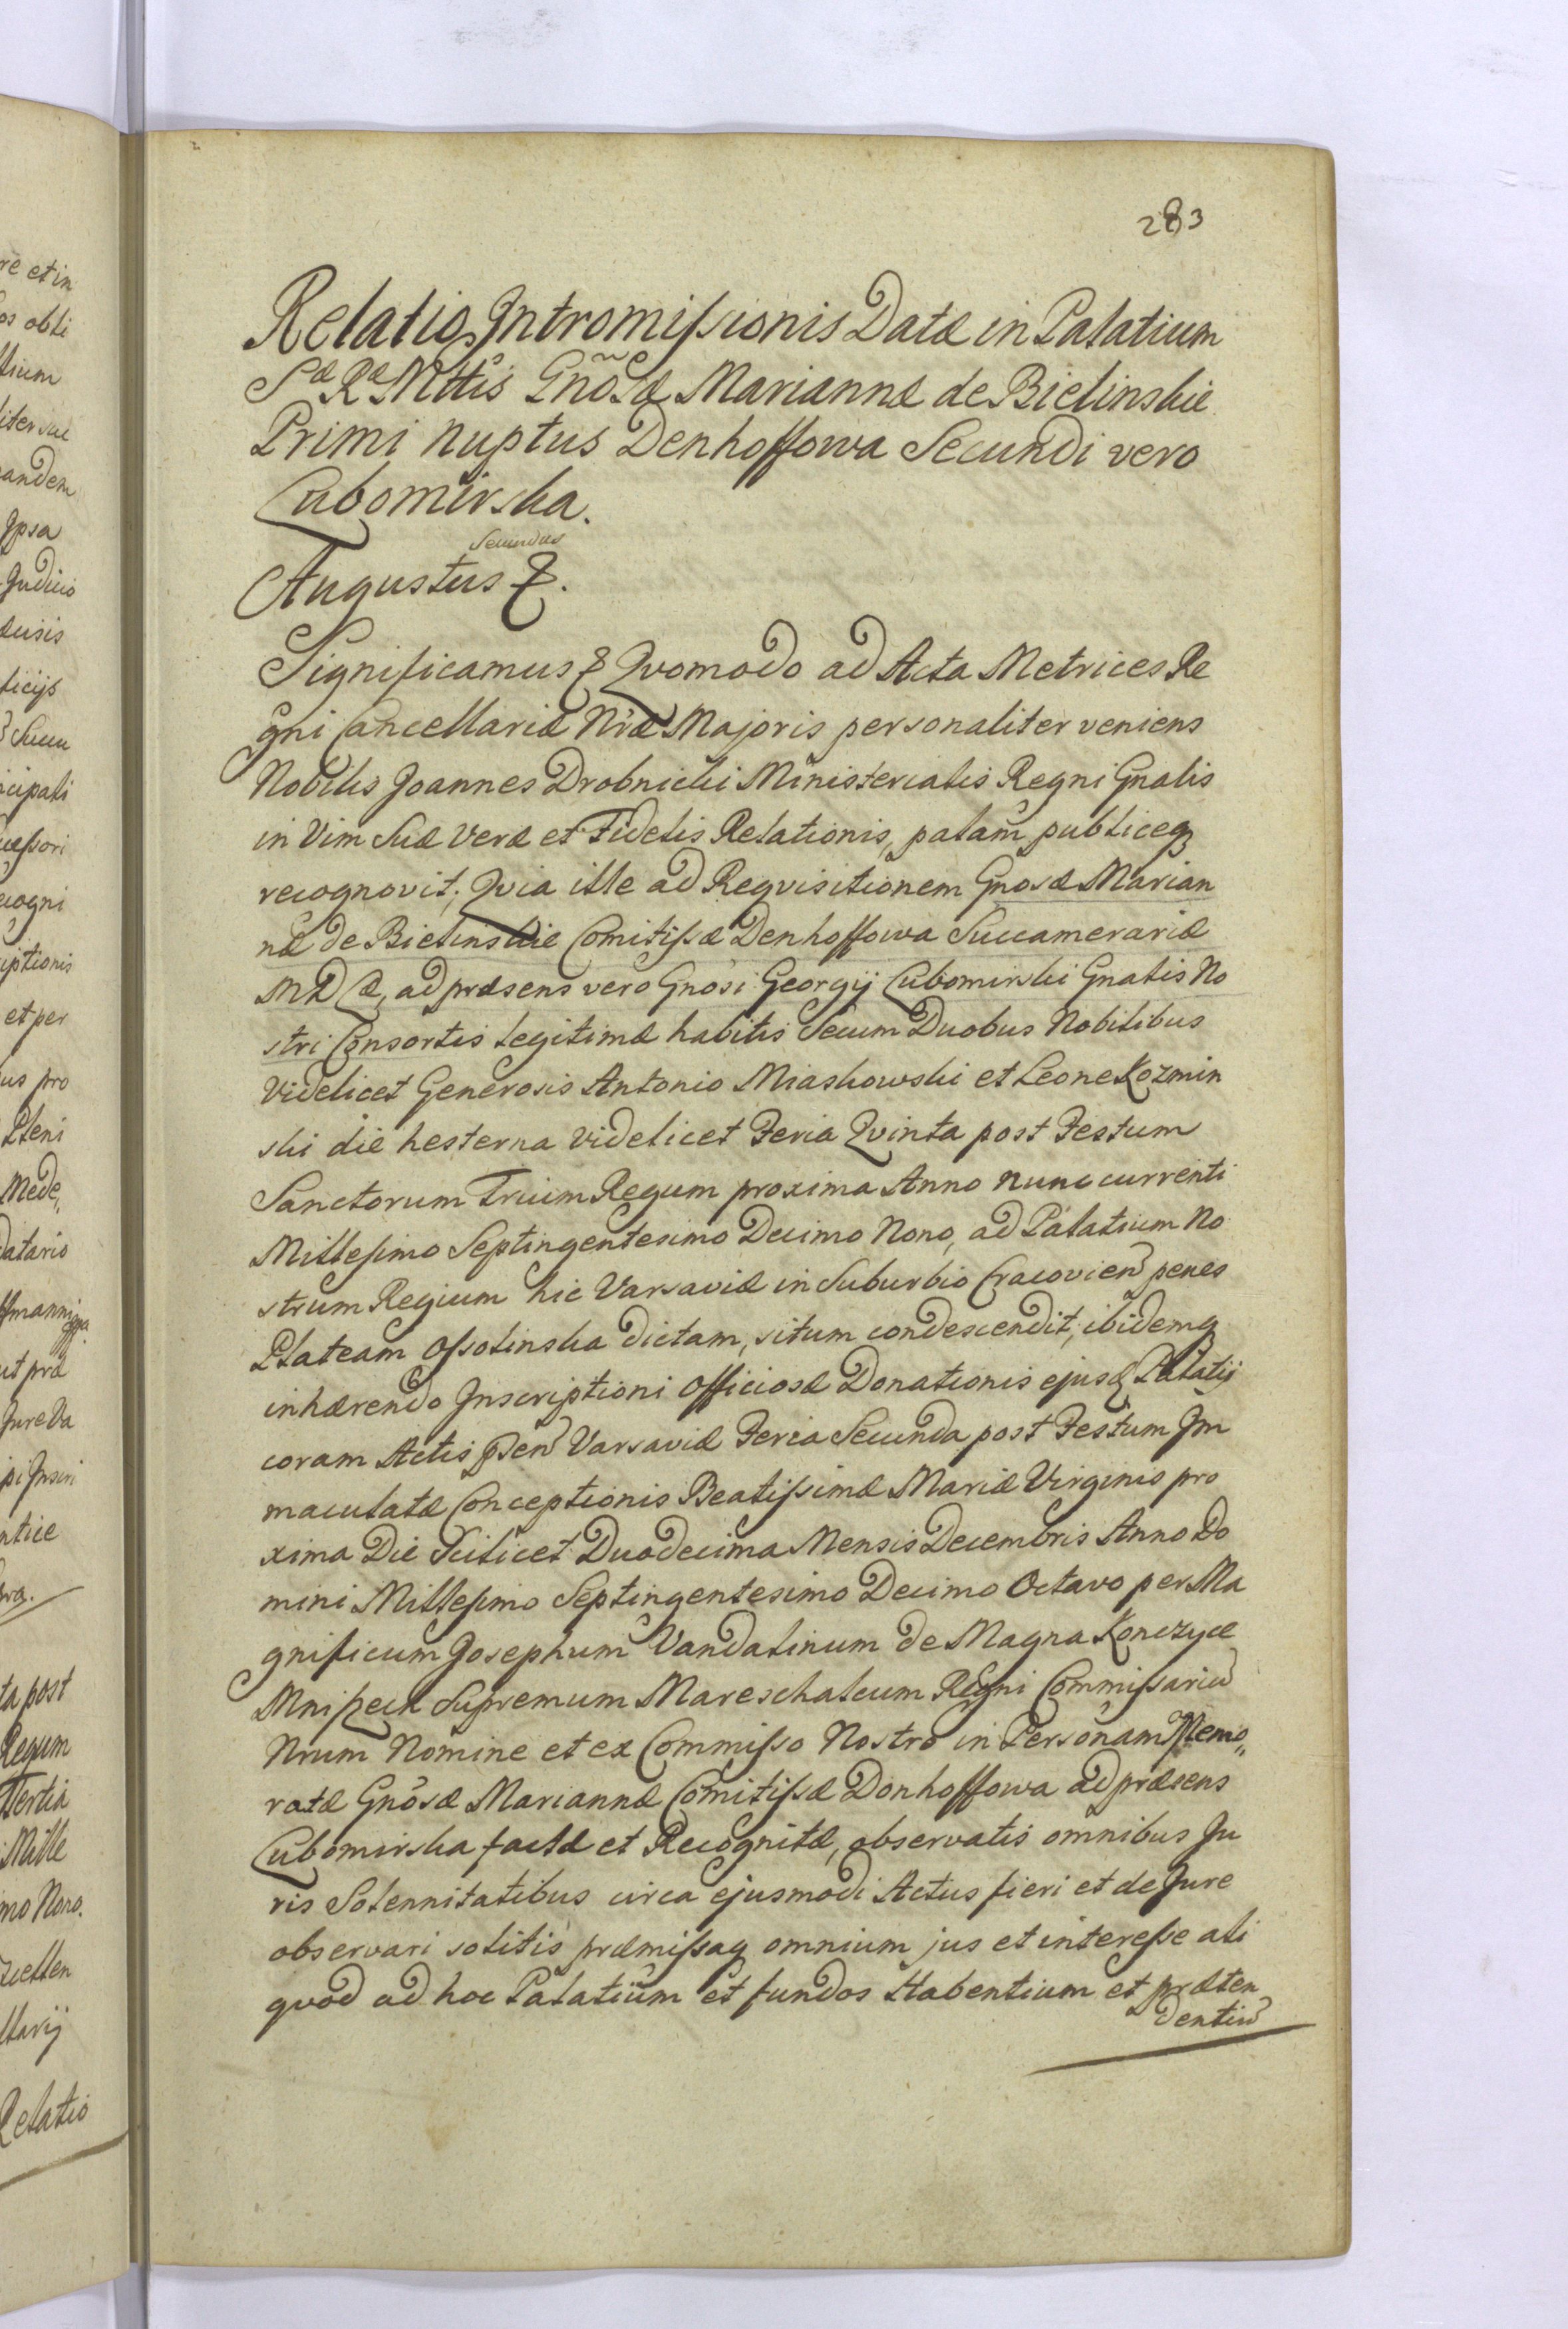 283
Relatio Intromissionis Datæ in Palatium
Sæ Ræ Mttis Gnõsæ Mariannæ de Bielinskie
Primi nuptus Denhoffowa Secundi vero
Lubomirska.
Secundus
Augustus &.
Significamus & Qvomodo ad Acta Metrices Re
gni Cancellariæ Nræ Majoris personaliter veniens
Nobilis Joannes Drobnicki Ministerialis Regni Gnalis
in Vim Suæ Veræ et Fidelis Relationis, palam publiceq
recognovit; Qvia ille ad Reqvisitionem Gnosæ Marian
næ de Bielinskie Comitissæ Denhoffowa Succamerariæ
M D L, ad præsens vero Gnosi Georgij Lubomirski Gnalis No
stri Consortis Legitimæ habitis Secum Duobus Nobilibus
Videlicet Generosis Antonio Miaskowski et Leone Kozmin
ski die hesterna videlicet Feria Qvinta post Festum
Sanctorum Trium Regum proxima Anno nunc currenti
Millesimo Septingentesimo Decimo Nono, ad Palatium No
strum Regium hic Varsaviæ in Suburbio Cracovien penes
Plateam Ossolinska dictam, situm condescendit; ibidemq
inhærendo Inscriptioni Officiosæ Donationis ejusd Palatij
coram Actis pñ Varsaviæ Feria Secunda post Festum Im
maculatæ Conceptionis Beatissimæ Mariæ Virginis pro
xima Die Scilicet Duodecima Mensis Decembris Anno Do
mini Millesimo Septingentesimo Decimo Octavo per Ma
gnificum Josephum Vandalinum de Magna Konczyce
Mniszech Supremum Mareschalcum Regni Commissariu
Nrum Nomine et ex Commisso Nostro in Personam Memo„
ratæ Gnosæ Mariannæ Comitissæ Donhoffowa ad præsens
Lubomirska factæ et Recognitæ, observatis omnibus Ju
ris Solennitatibus circa ejusmodi Actus fieri et de Jure
observari solitis præmissaq omnium jus et interesse ali
qvod ad hoc Palatium et fundos Habentium et præten
dentiu
re et in
os obli
andem
Ipsa
Judicio
icipali
ecogni
iptionis
et per
us pro
Pleni
Mede„
datario
ut præ
Jure Va
ta post
Regum
Tertia
Mille
mo Nono.
Relatio